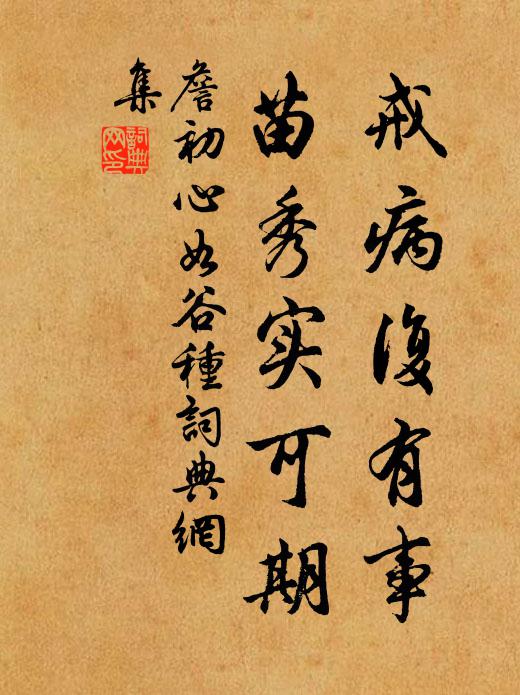 戒病復有事
苗秀实可期
詹初心如谷種詞典網
集
詞典網印